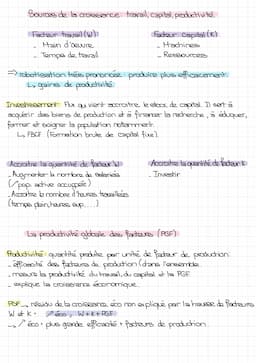 Sources de la croissance: travail, capital, productivité.
Facteur travail (W)
Facteur capital (K)
- Main d'oeuvre
- Machines
- Temps de travail
- Ressources
=> robotisation très prononcée: produire plus efficacement
↳ gains de productivité
Investissement: Flux qui vient accroitre le stock de capital. Il sert à
acquérir des biens de production et à financer la recherche, à éduquer,
former et soigner la population notamment.
↳ FBCF (formation brute de capital fixe).
Accroitre la quantité de facteur W
Accroitre la quantité de facteur K
- Augmenter le nombre de salariés
- Investir
(↗pop. active occupée)
- Accroitre le nombre d'heures travaillées
(temps plein, heures sup...)
La productivité globale des facteurs (PGF)
Productivité: quantité produite par unité de facteur de production
- efficacité des facteurs de production dans l'ensemble
- mesure la productivité du travail, du capital et la PGF
- explique la croissance économique
PGF → résidu de la croissance éco non expliqué par la hausse de facteurs
W et K. ↗ éco, W+K+PGF
→ ↗ éco = plus grande efficacité + facteurs de production